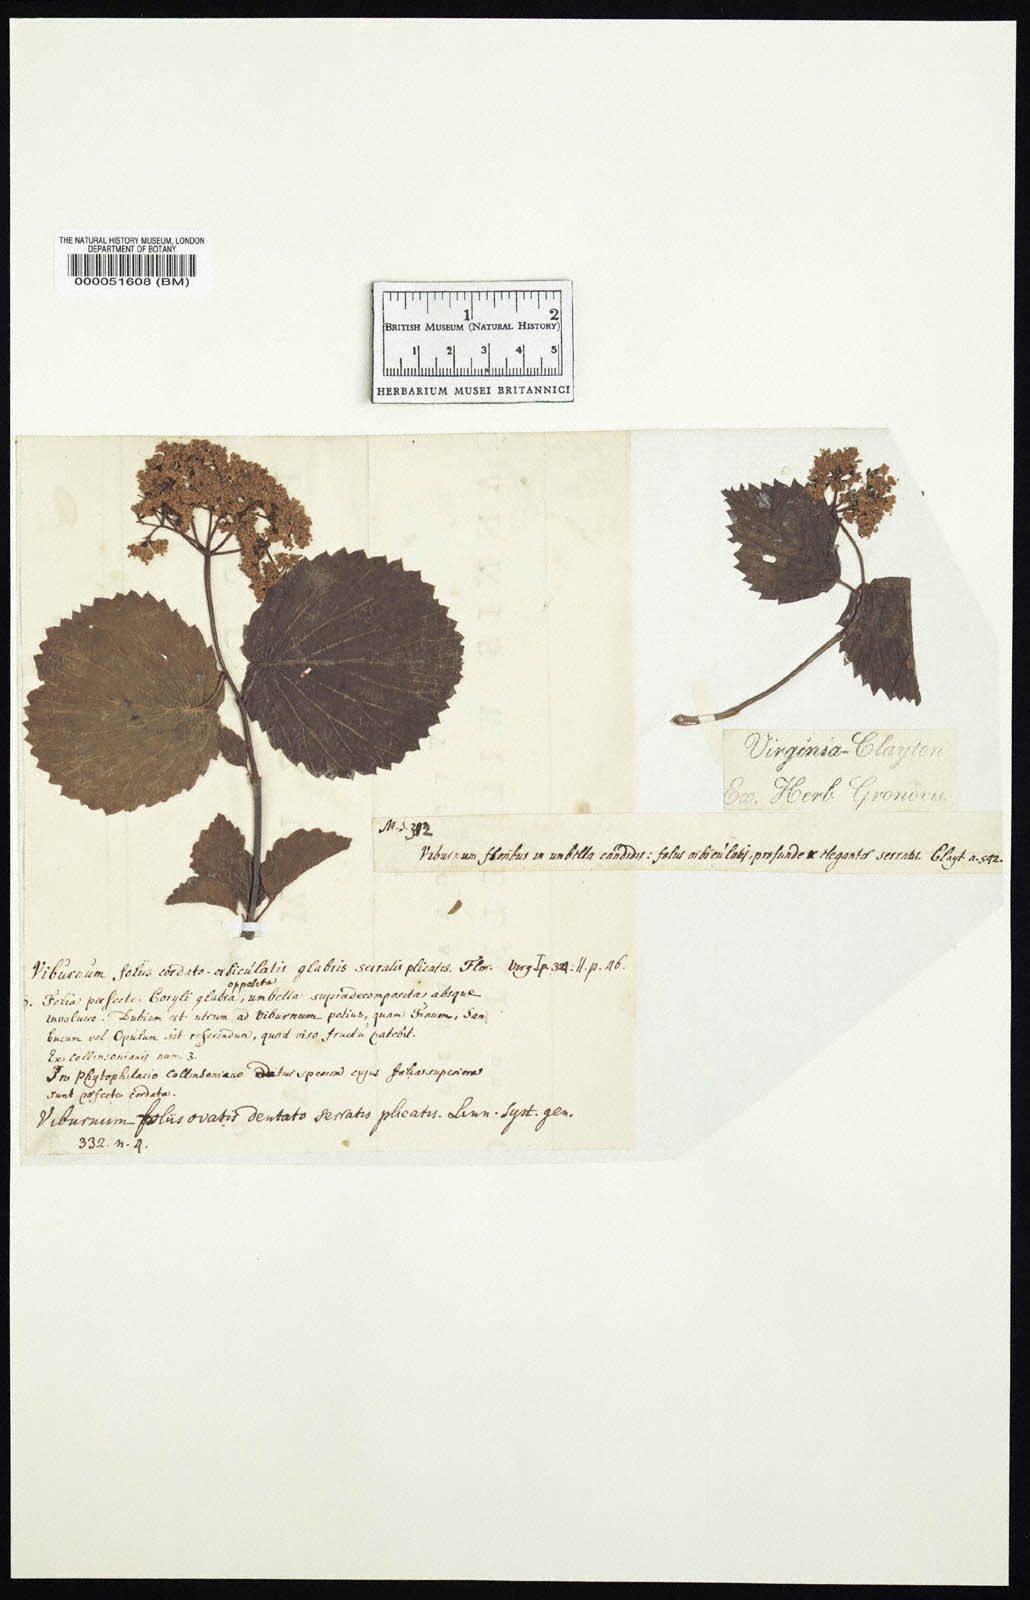 THE NATURAL HISTORY MUSEUM, LONDON
DEPARTMENT OF BOTANY
000051608 (BM)
1 2
BRITISH MUSEUM (NATURAL HISTORY)
1 2 3 4 5
HERBARIUM MUSEI BRITANNICI
Virginia-Clayton
Ex. Herb Gronovii
M. S. 392
Viburnum floribus in umbella candidis: foliis orbiculatis, profunde & eleganter serratis. Clayt n. 542.
Viburnum foliis cordato-orbiculatis glabris serratis plicatis. Flor. Virg I p. 34. II. p. 46.
opposita
Folia perfecte Coryli glabra, umbella supradecomposita absque
involucro. Dubium est utrum ad Viburnum potius, quam Tinum, Sam
bucum vel Opulum sit referendum, quod viso fructu patebit.
Ex Collinsonianis num. 3.
In Phytophilacio Collinsoniano datur specimen cujus folia superiora
sunt perfecte cordata.
Viburnum foliis ovatis dentato serratis plicatis. Linn. Syst. gen.
332. n. 4.